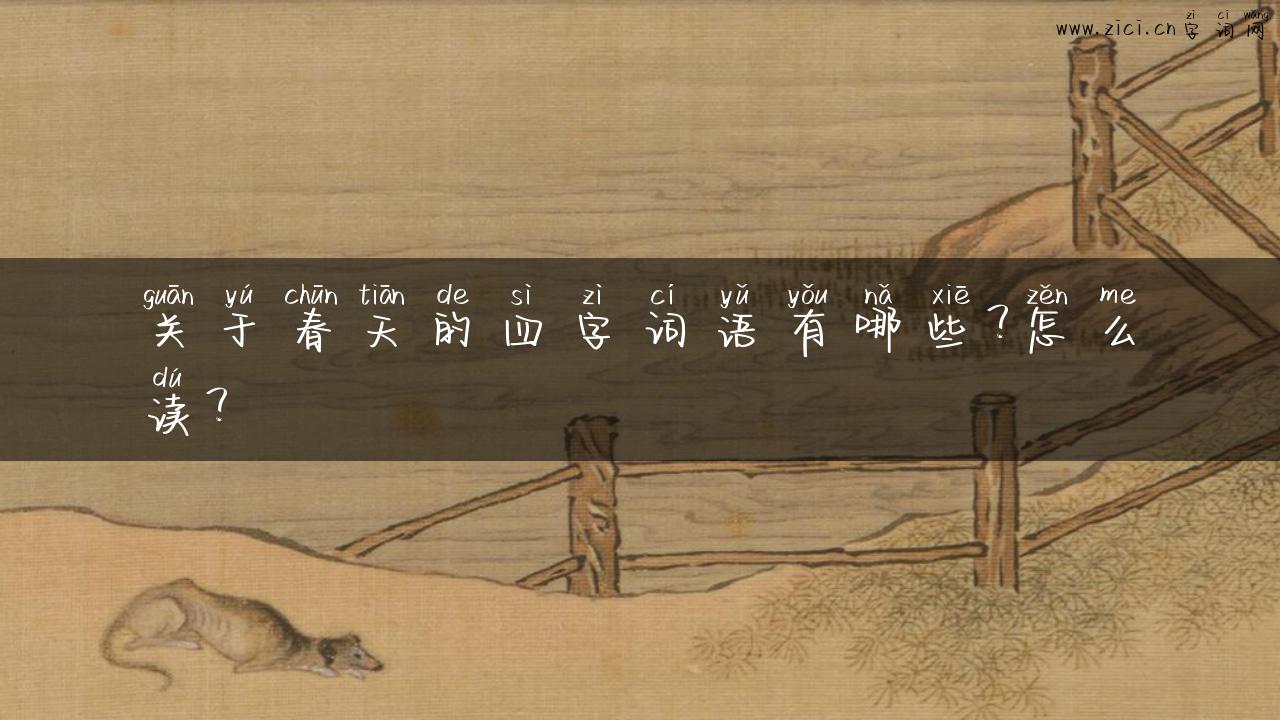 zì cí wǎng
www.zici.cn字词网
guān yú chūn tiān de sì zì cí yǔ yǒu nǎ xiē zěn me
关于春天的四字词语有哪些?怎么
dú
读?